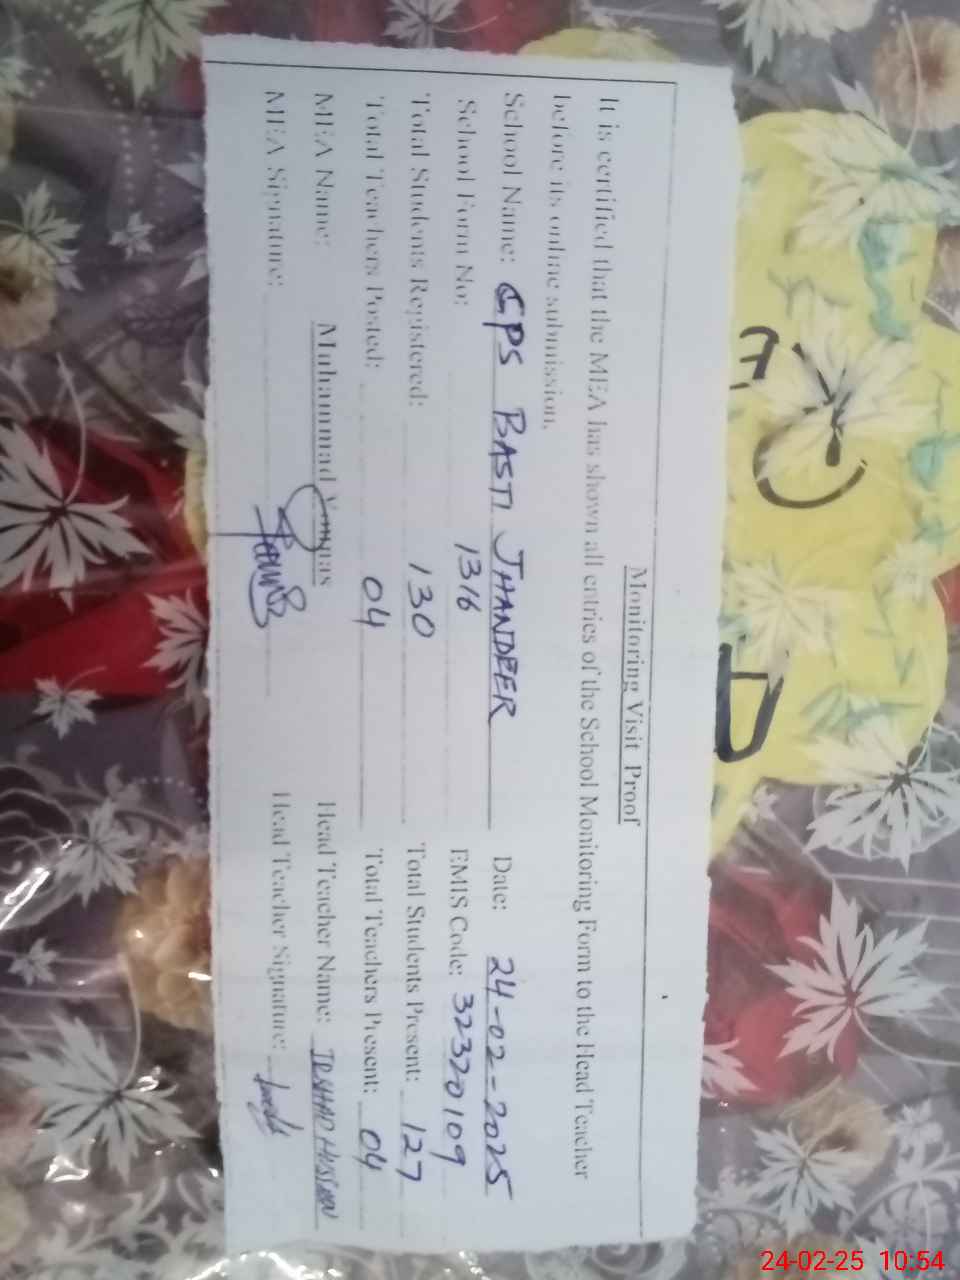 Monitoring Visit Proof
It is certified that the MEA has shown all entries of the School Monitoring Form to the Head Teacher
before its online submission.
School Name: GPS BASTI JHANDEER Date: 24-02-2025
School Form No: 1316 EMIS Code: 32320109
Total Students Registered: 130 Total Students Present: 127
Total Teachers Posted: 04 Total Teachers Present: 04
MEA Name: Muhammad Younas Head Teacher Name: IRSHAD HUSSAIN
MEA Signature: Head Teacher Signature:
24-02-25 10:54